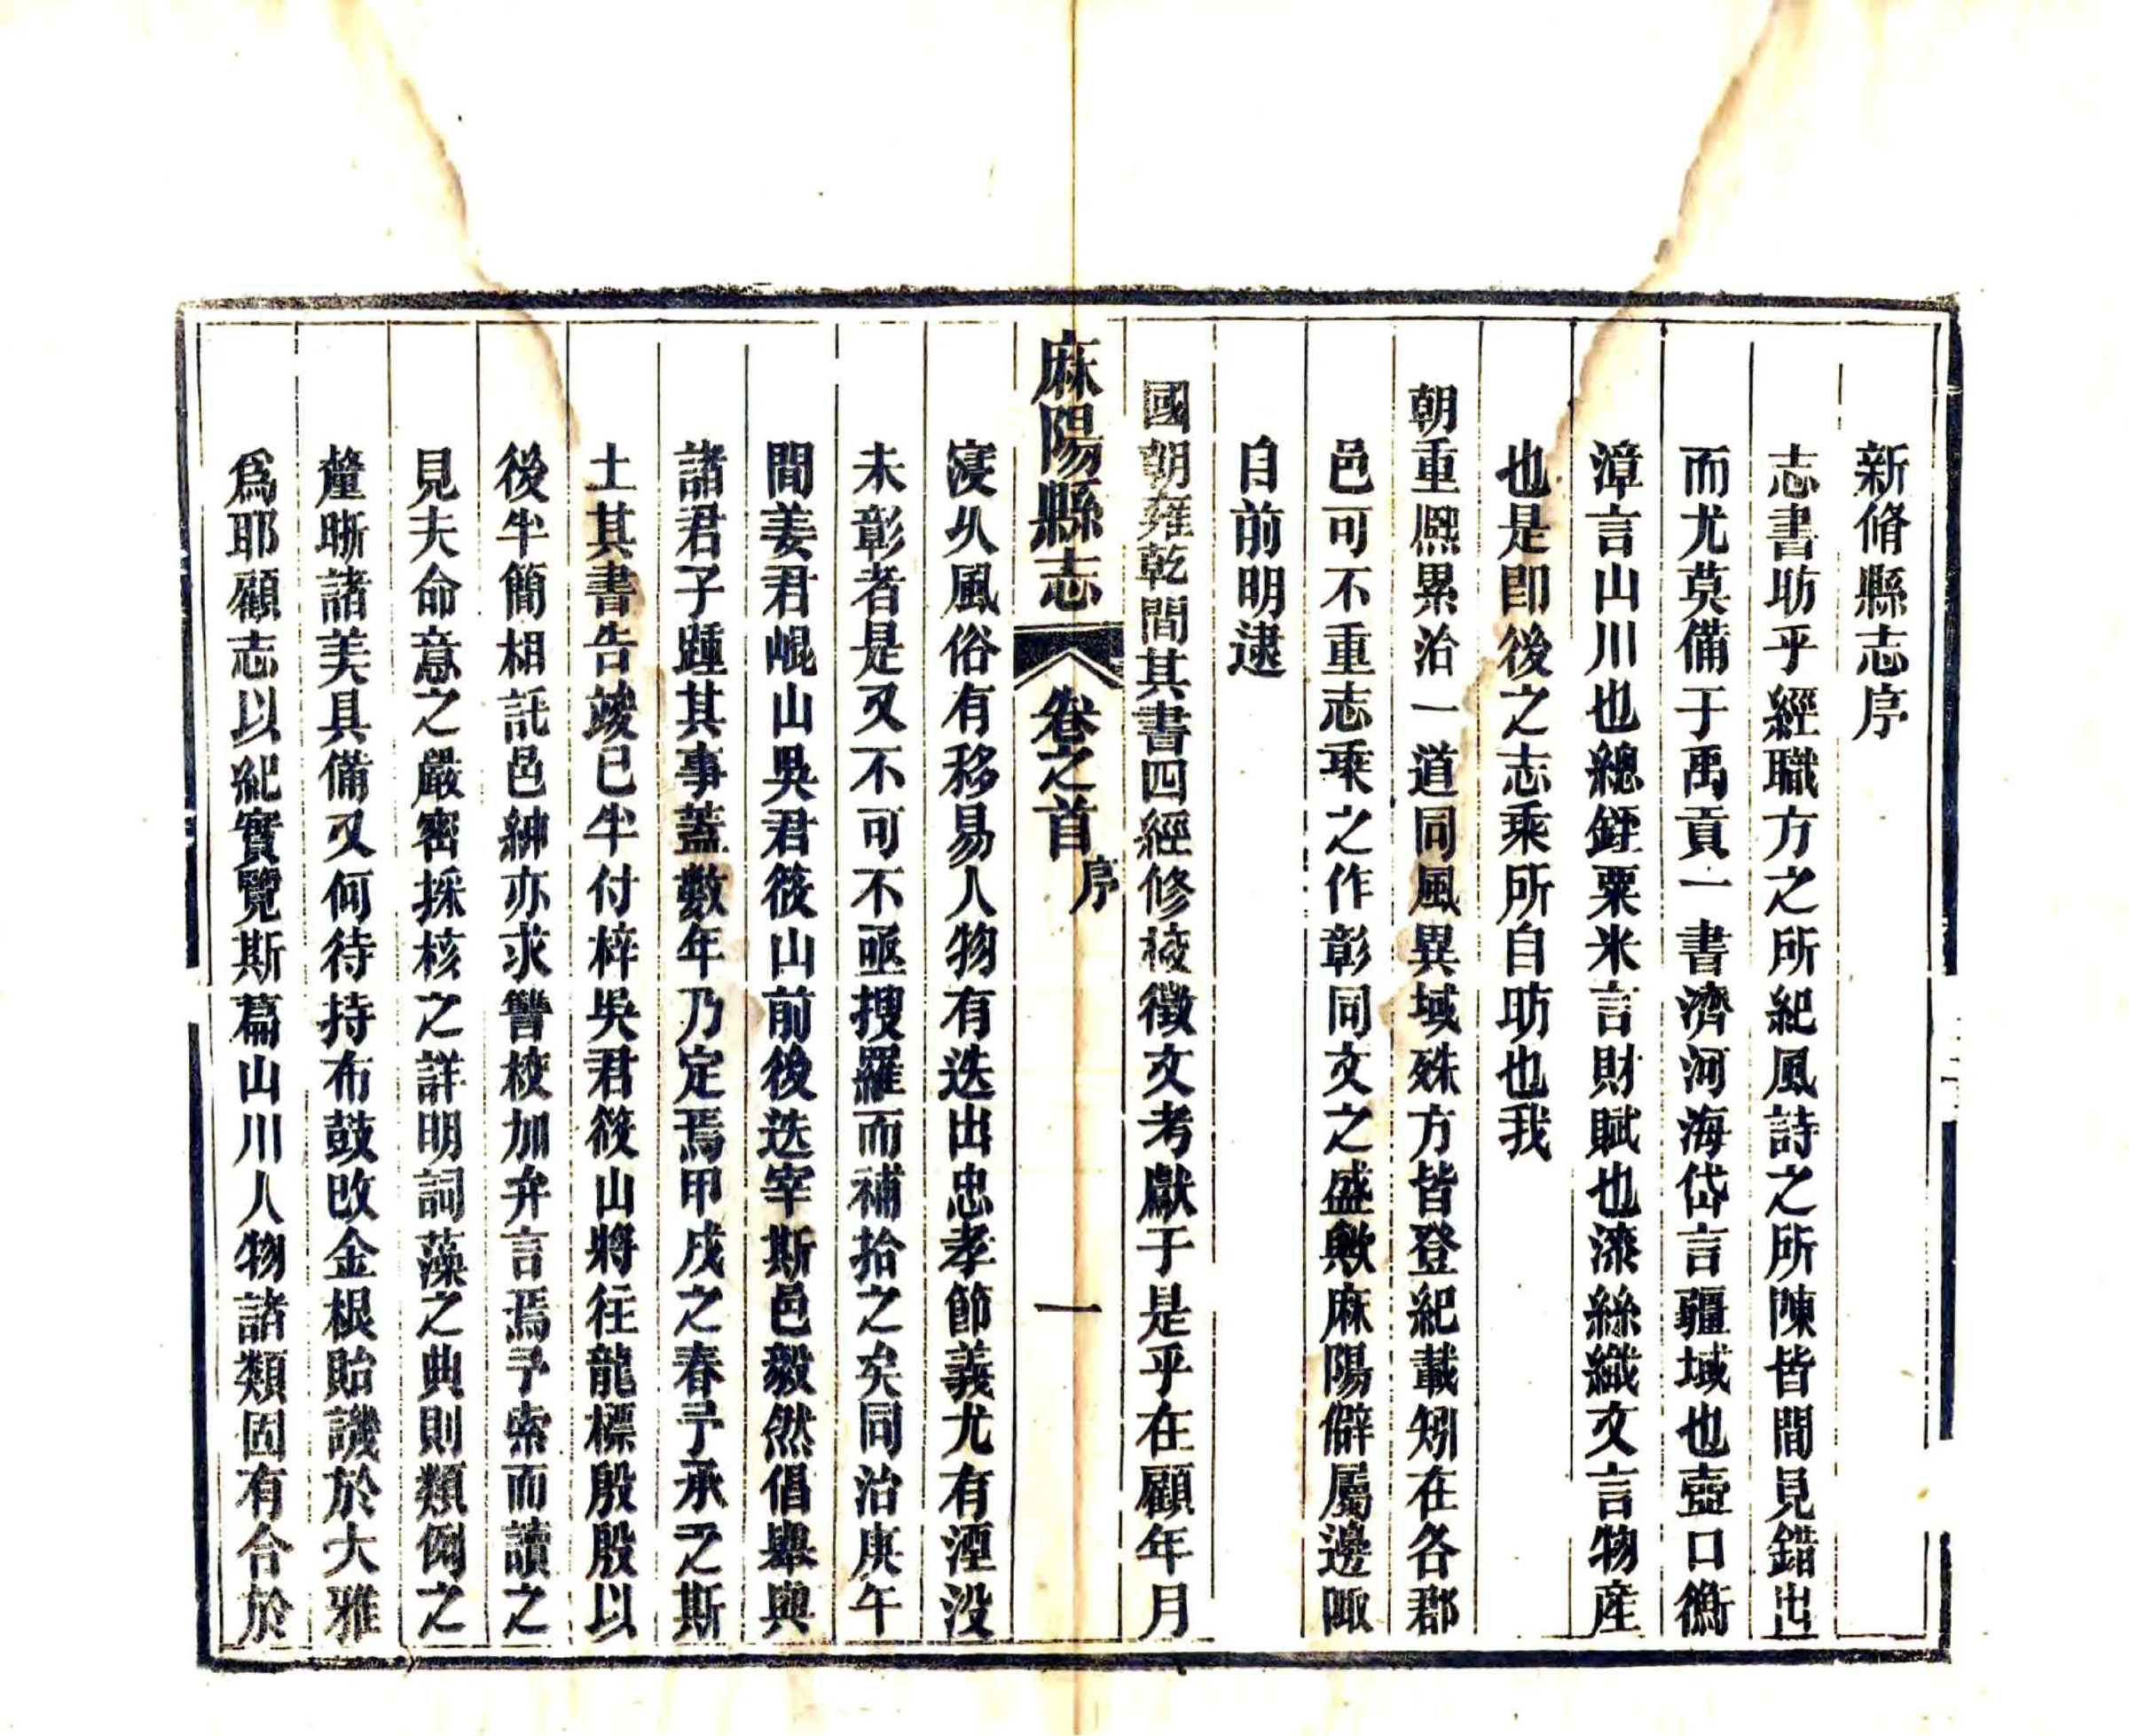 新脩縣志序
志書昉乎經職方之所紀風詩之所陳皆間見錯出
而尤莫備于禹貢一書濟河海岱言疆域也壺口衡
漳言山川也總銍粟米言財賦也漆絲織文言物産
也是即後之志乘所自昉也我
朝重熙累洽一道同風異域殊方皆登紀載矧在各郡
邑可不重志乘之作彰同文之盛歟麻陽僻屬邊陬
自前明逮
國朝雍乾間其書四經修校徵文考獻于是乎在顧年月
麻陽縣志 卷之首 序 一
寖久風俗有移易人物有迭出忠孝節義尤有湮没
未彰者是又不可不亟搜羅而補拾之矣同治庚午
間姜君崐山吳君筱山前後迭宰斯邑毅然倡舉與
諸君子踵其事蓋數年乃定焉甲戌之春予承乏斯
土其書告竣已半付梓吳君筱山將往龍標殷殷以
後半簡相託邑紳亦求讐校加弁言焉予索而讀之
見夫命意之嚴密採核之詳明詞藻之典則類例之
釐晰諸美具備又何待持布鼓改金根貽譏於大雅
爲耶顧志以紀實覽斯篇山川人物諸類固有合於